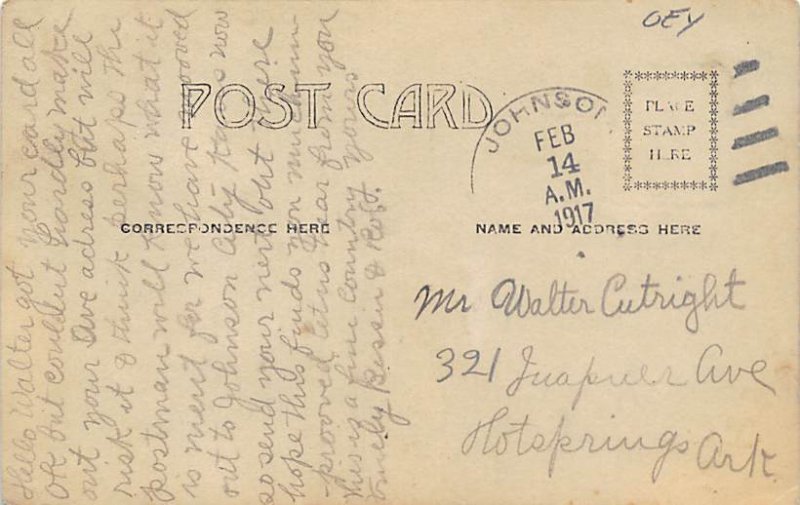 OEY
POST CARD
PLACE
STAMP
HERE
JOHNSON
FEB
14
A.M.
1917
CORRESPONDENCE HERE
NAME AND ADDRESS HERE
Hello Walter got your card all
OK but couldent hardly make
out your Ave adress but will
risk it I think perhaps the
postman will know what it
is ment for we have mooved
out to Johnson City Kans now
so send your next out there
hope this finds you much im-
-prooved let us hear from you
this is a fine country yours
Truely Bessie &
Mr Walter Cutright
321 Ave
Hotsprings Ark.